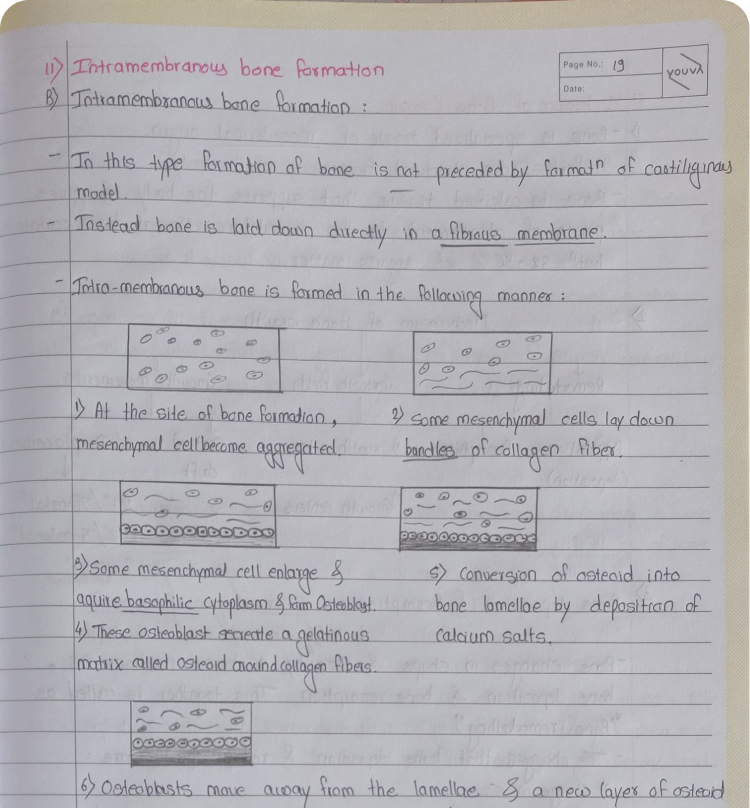 11) Intramembranous bone formation
Page No.: 19
Date:
youva
B) Intramembranous bone formation :
- In this type formation of bone is not preceded by formatn of castiliginous
model.
- Instead bone is laid down directly in a fibrous membrane.
- Intra-membranous bone is formed in the following manner :
1) At the site of bone formation,
mesenchymal cell become aggregated.
2) Some mesenchymal cells lay down
bandles of collagen fiber.
3) Some mesenchymal cell enlarge &
aquire basophilic cytoplasm & form Osteoblast.
4) These osteoblast secreate a gelatinous
matrix called osteoid around collagen fibers.
5) Conversion of osteoid into
bone lamellae by deposition of
calcium salts.
6) Osteoblasts move away from the lamellae & a new layer of osteoid